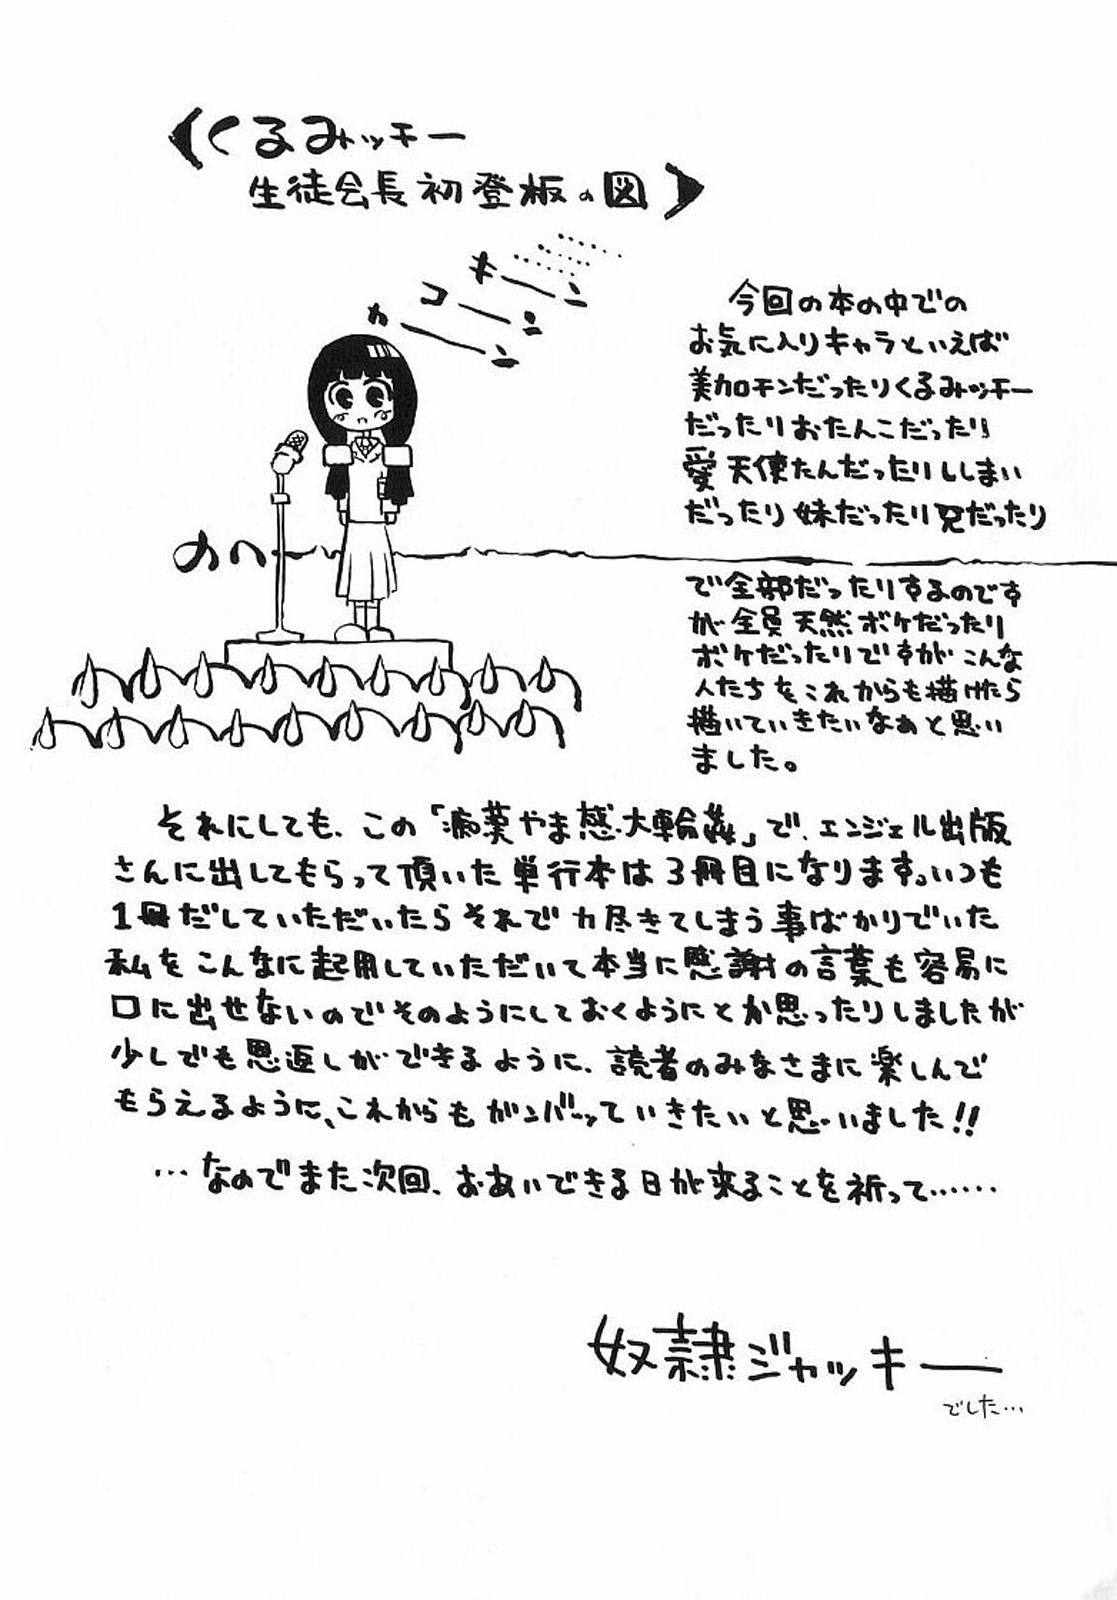 くるみッチー
生徒会長初登板の図
キーン
コーン
カーン
今回の本の中での
お気に入りキャラといえば
美加モンだったりくるみッチー
だったりおたんこだったり
愛天使たんだったりししまい
だったり妹だったり兄だったり
で全部だったりするのです
が全員天然ボケだったり
ボケだったりですがこんな
人たちをこれからも描けたら
描いていきたいなぁと思い
ました。
それにしても、この「痴薬やま惑大輪姦」で、エンジェル出版
さんに出してもらって頂いた単行本は3冊目になります。いつも
1冊だしていただいたらそれで力尽きてしまう事ばかりでいた
私をこんなに起用していただいて本当に感謝の言葉も容易に
口に出せないのでそのようにしておくようにとか思ったりしましたが
少しでも恩返しができるように、読者のみなさまに楽しんで
もらえるように、これからもガンバッていきたいと思いました!!
…なのでまた次回、おあいできる日が来ることを祈って……
奴隷ジャッキー
でした…